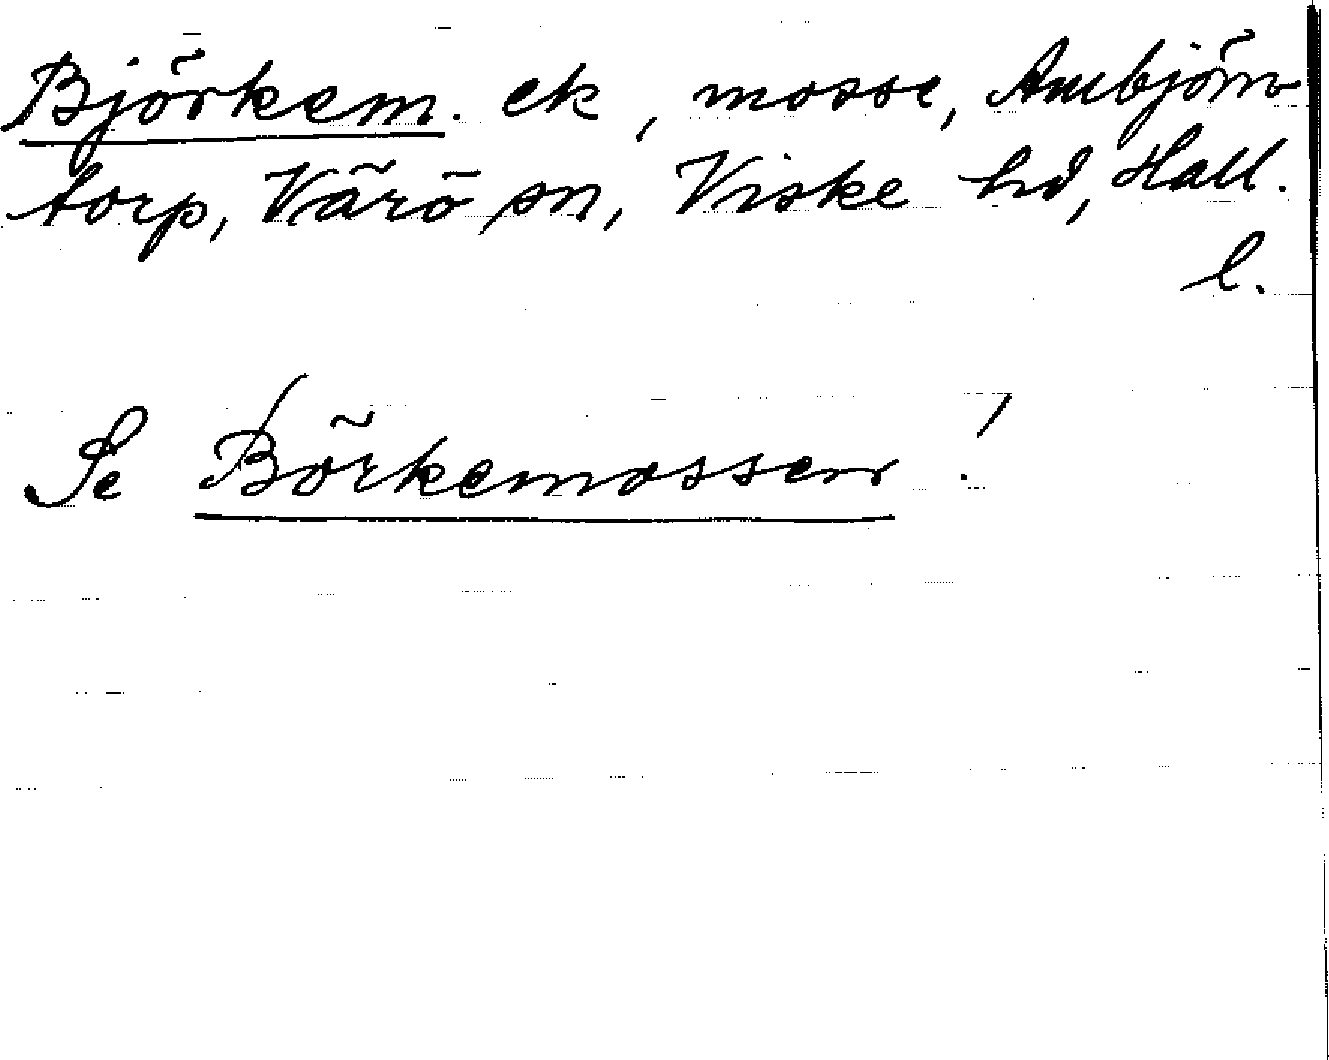 Björkem. ek, mosse, Ambjörn-
torp, Värö sn, Viske hd, Hall.
l.
Se Börkemossen!